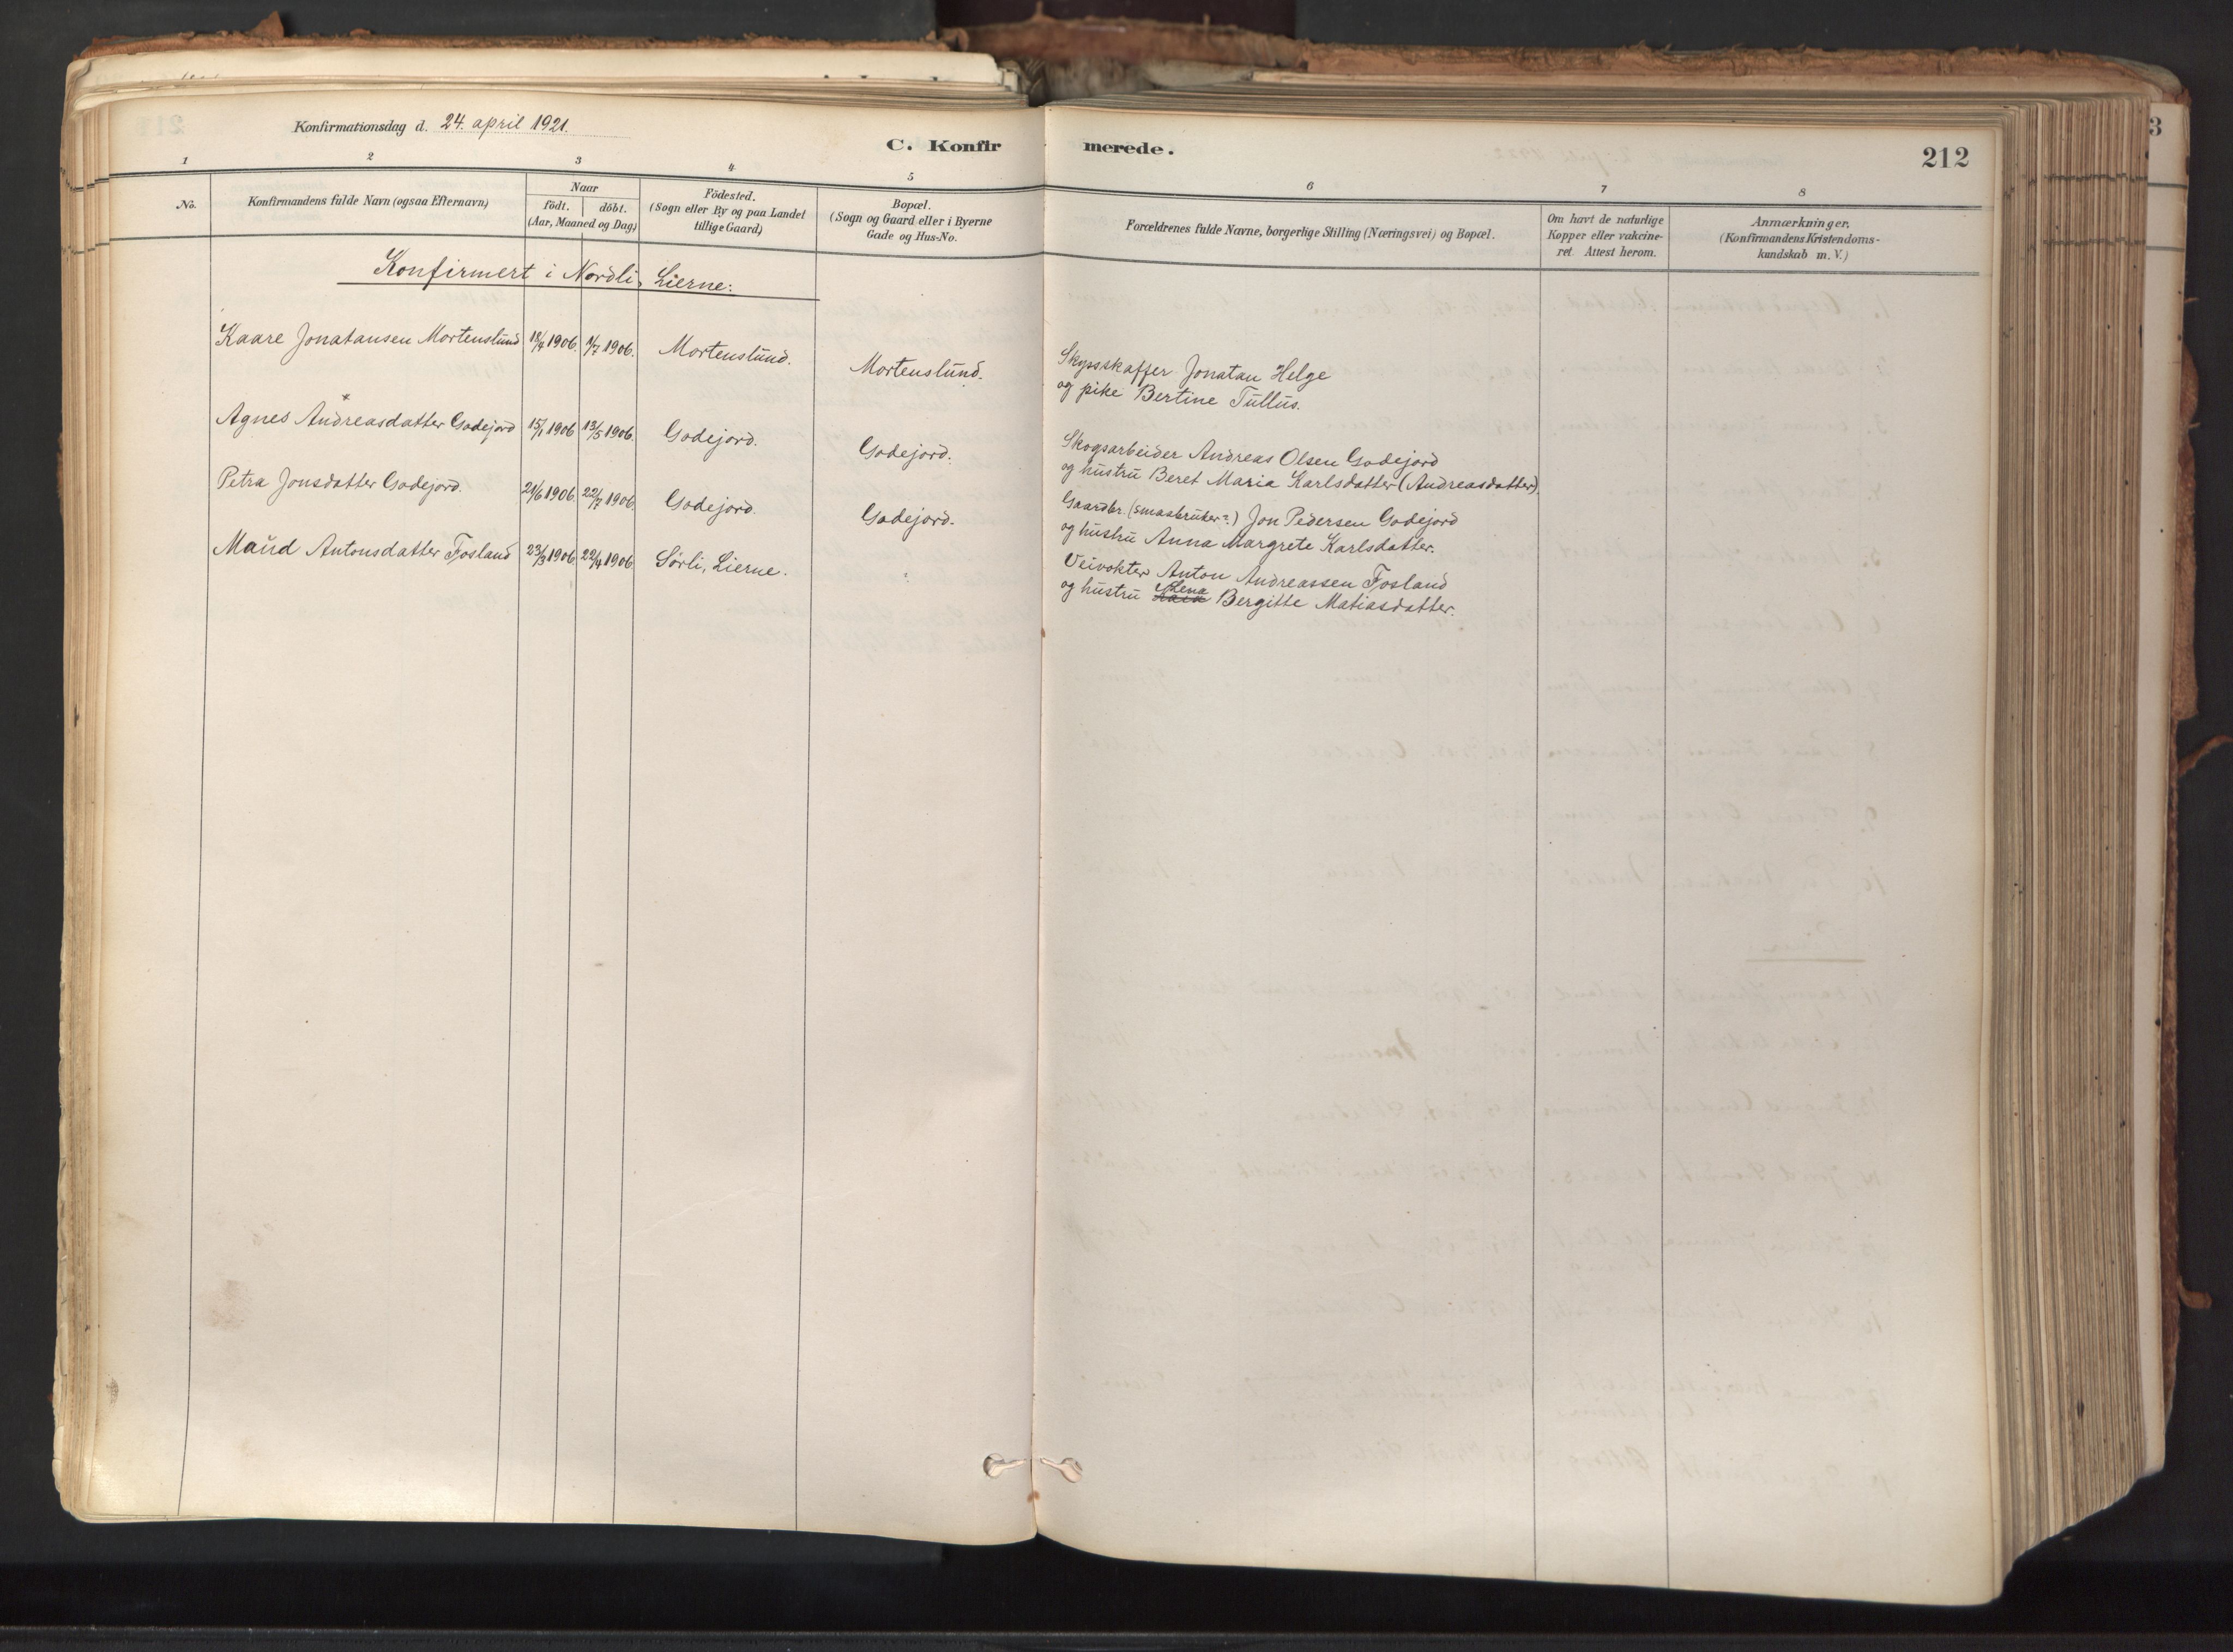 Konfirmationsdag d. 24. april 1921.
C. Konfirmerede.
212
1 2 3 4 5 6 7 8
No.
Konfirmandens fulde Navn (ogsaa Efternavn)
Naar
födt. döbt.
(Aar, Maaned og Dag)
Födested.
(Sogn eller By og paa Landet
tillige Gaard)
Bopæl.
(Sogn og Gaard eller i Byerne
Gade og Hus-No.
Forældrenes fulde Navne, borgerlige Stilling (Næringsvei) og Bopæl.
Om havt de naturlige
Kopper eller vakcine-
ret. Attest herom.
Anmærkninger,
(Konfirmandens Kristendoms-
kundskab m. V.)
Konfirmert i Nordli, Lierne:
Kaare Jonatansen Mortenslund 18/4 1906. 1/7 1906. Mortenslund. Mortenslund.
Skysskaffer Jonatan Helge
og pike Bertine Tullus.
Agnes Andreasdatter Godejord 15/1 1906 13/5 1906. Godejord. Godejord.
Skogsarbeider Andreas Olsen Godejord
og hustru Beret Maria Karlsdatter (Andreasdatter)
Petra Jonsdatter Godejord. 21/6 1906. 22/7 1906. Godejord. Godejord.
Gaardbr. (smaabruker?) Jon Pedersen Godejord
og hustru Anna Margrete Karlsdatter.
Maud Antonsdatter Fosland 23/3 1906. 22/4 1906. Sörli, Lierne.
Veivokter Anton Andreassen Fosland
og hustru Bergitte Matiasdatter.
3